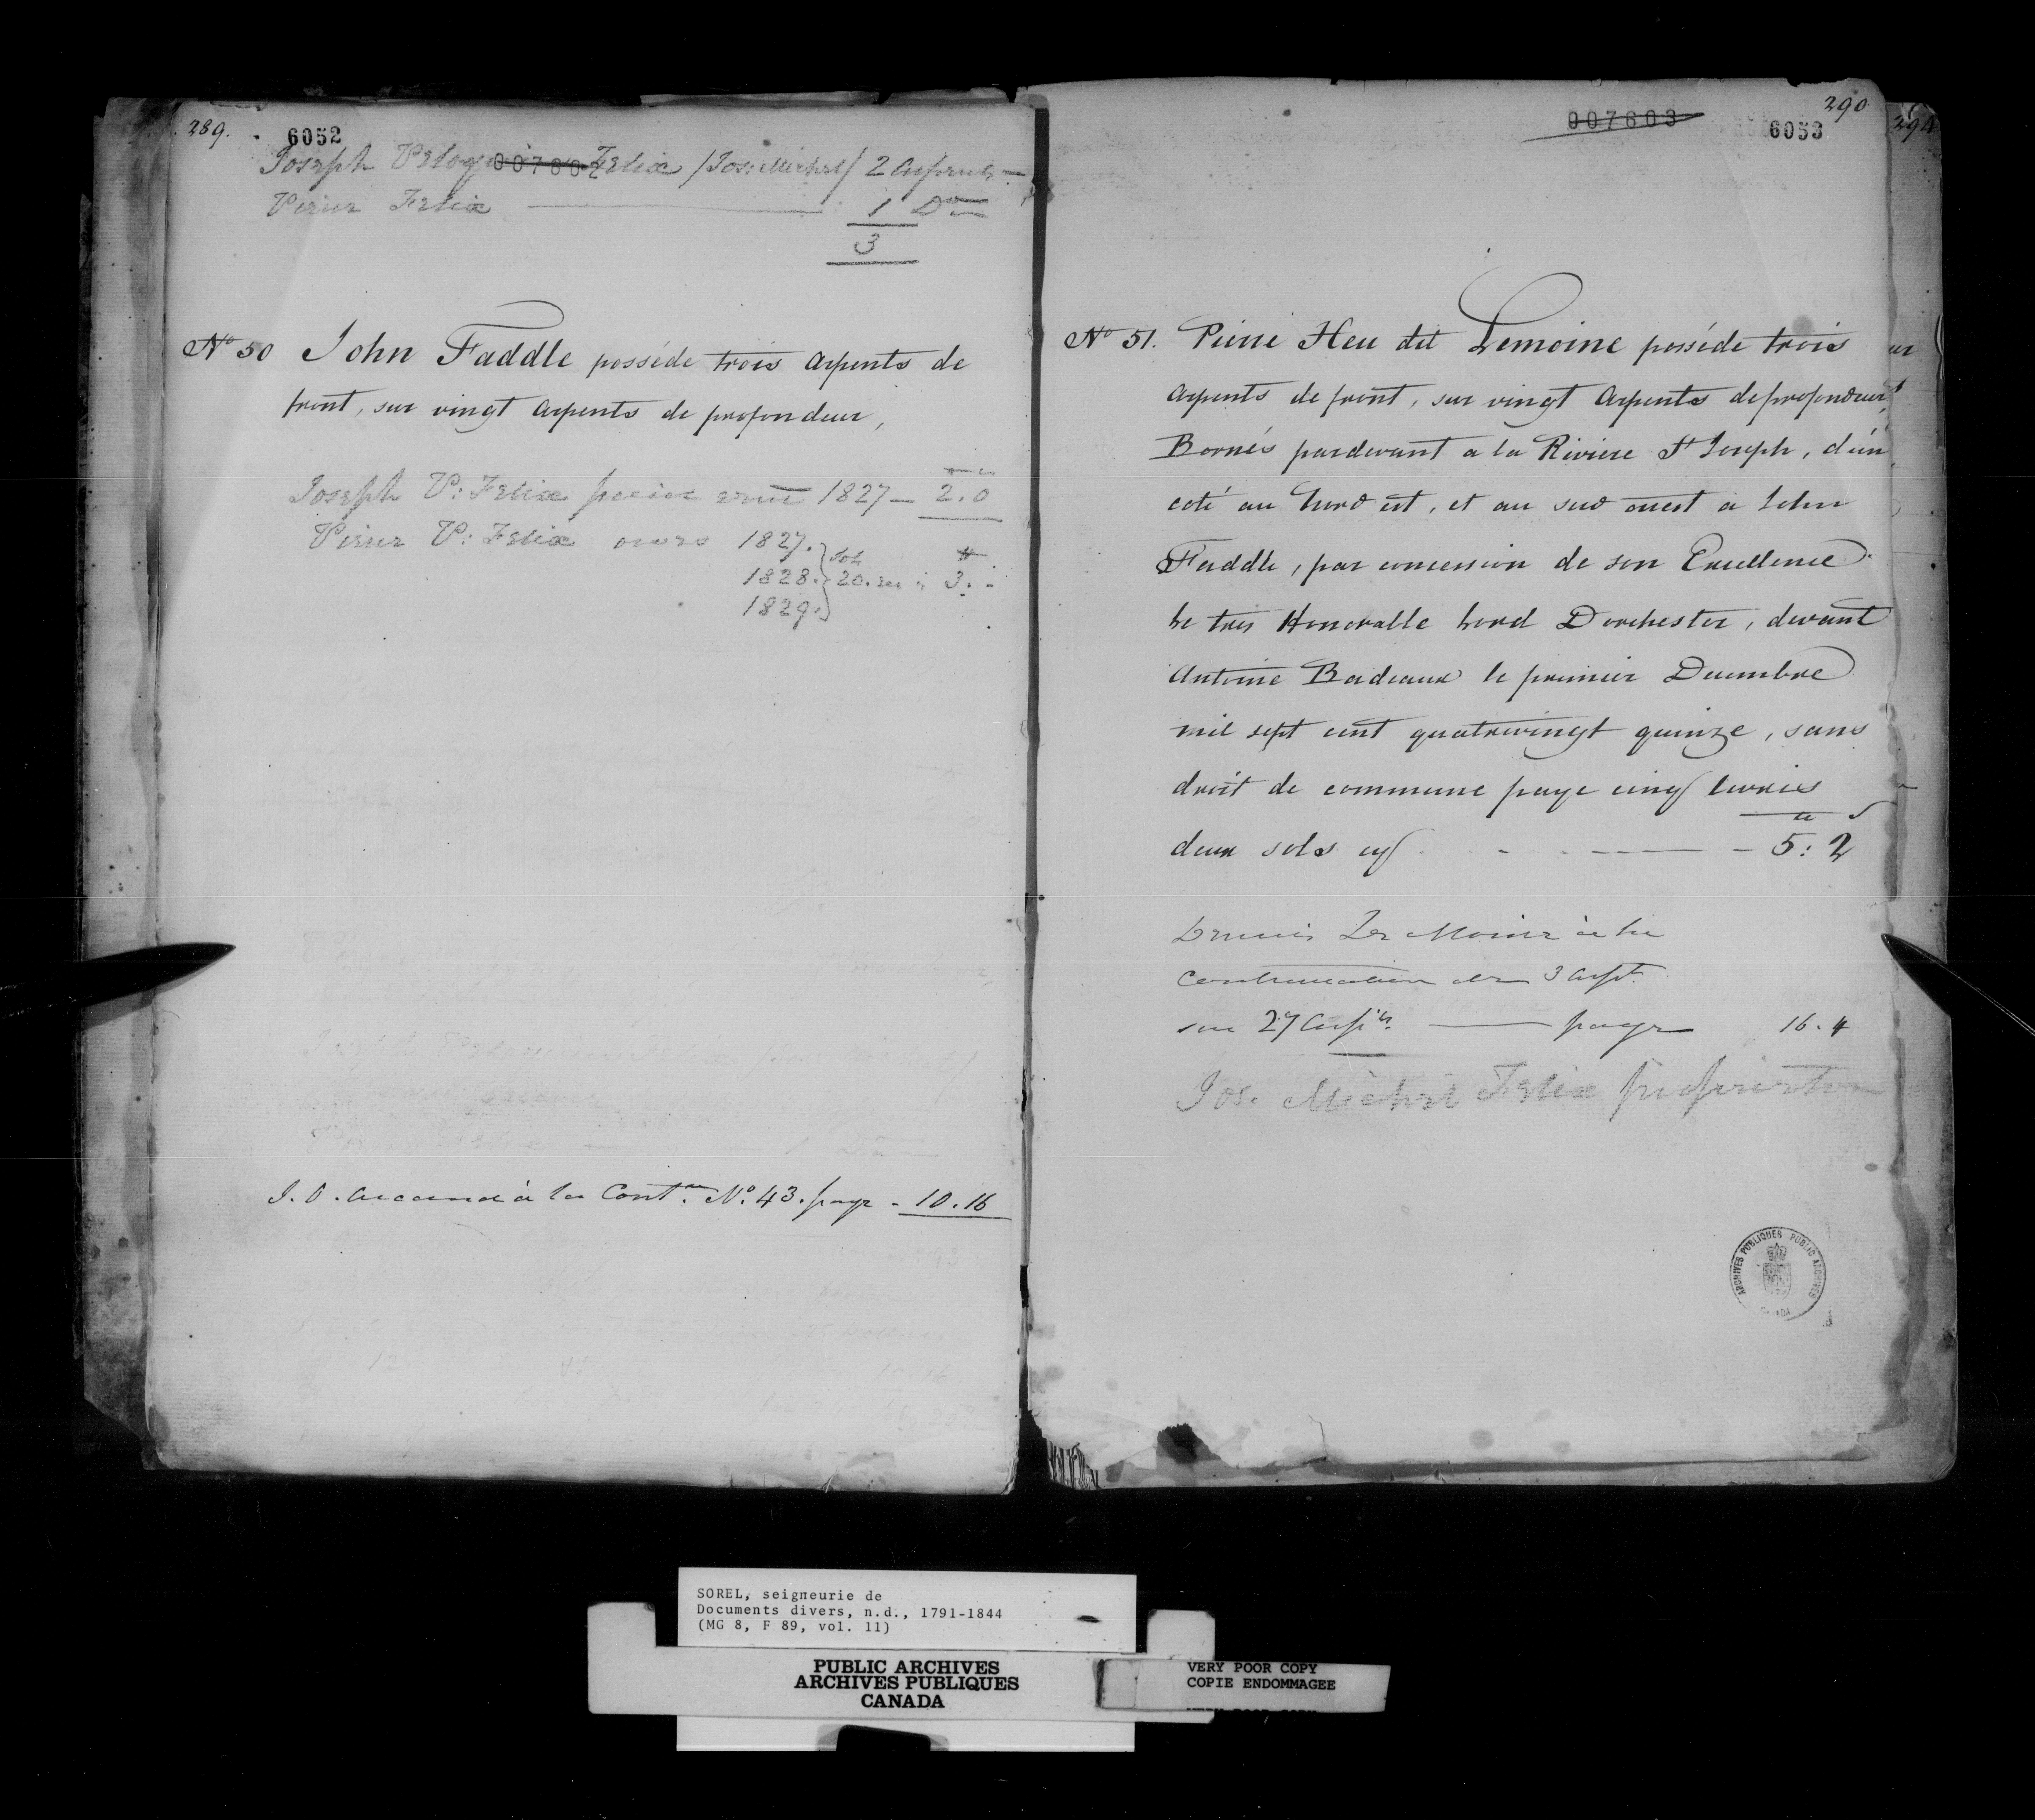 289.
6052
Joseph Peloquin Felix / Jos: Michel / 2 Arpents —
Pierre Felix — 1 Do
3
No 50 John Faddle posséde trois Arpents de
front, sur vingt Arpents de profondeur,
Joseph P: Felix 1827 — 2.0
Pierre P: Felix 1827.
1828. 20. 3. -
1829.
J. O. à la Contn. No. 43. paye - 10.16
290
007603
6053
294
No 51. Pierre Heu dit Lemoine posséde trois
Arpents de front, sur vingt Arpents de profondeur,
Bornés pardevant a la Riviere St Joseph, d'un
coté au Nord est, et au sud ouest a John
Faddle, par concession de son Excellence
Le tres Honorable Lord Dorchester, devant
Antoine Bardeaux le premier Decembre
mil sept cent quatrevingt quinze, sans
droit de commune paye cinq livres
deux sols cy — 5: 2
Le Moine à la
Continuation de 3 Arpt.
sur 27 Arpts. — paye 16.4
Jos. Michel Felix proprietor
ARCHIVES PUBLIQUES PUBLIC ARCHIVES
CANADA
SOREL, seigneurie de
Documents divers, n.d., 1791-1844
(MG 8, F 89, vol. 11)
PUBLIC ARCHIVES
ARCHIVES PUBLIQUES
CANADA
VERY POOR COPY
COPIE ENDOMMAGEE